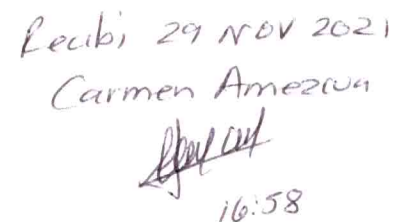 Recibi 29 NOV 2021
Carmen Amezcua
16:58